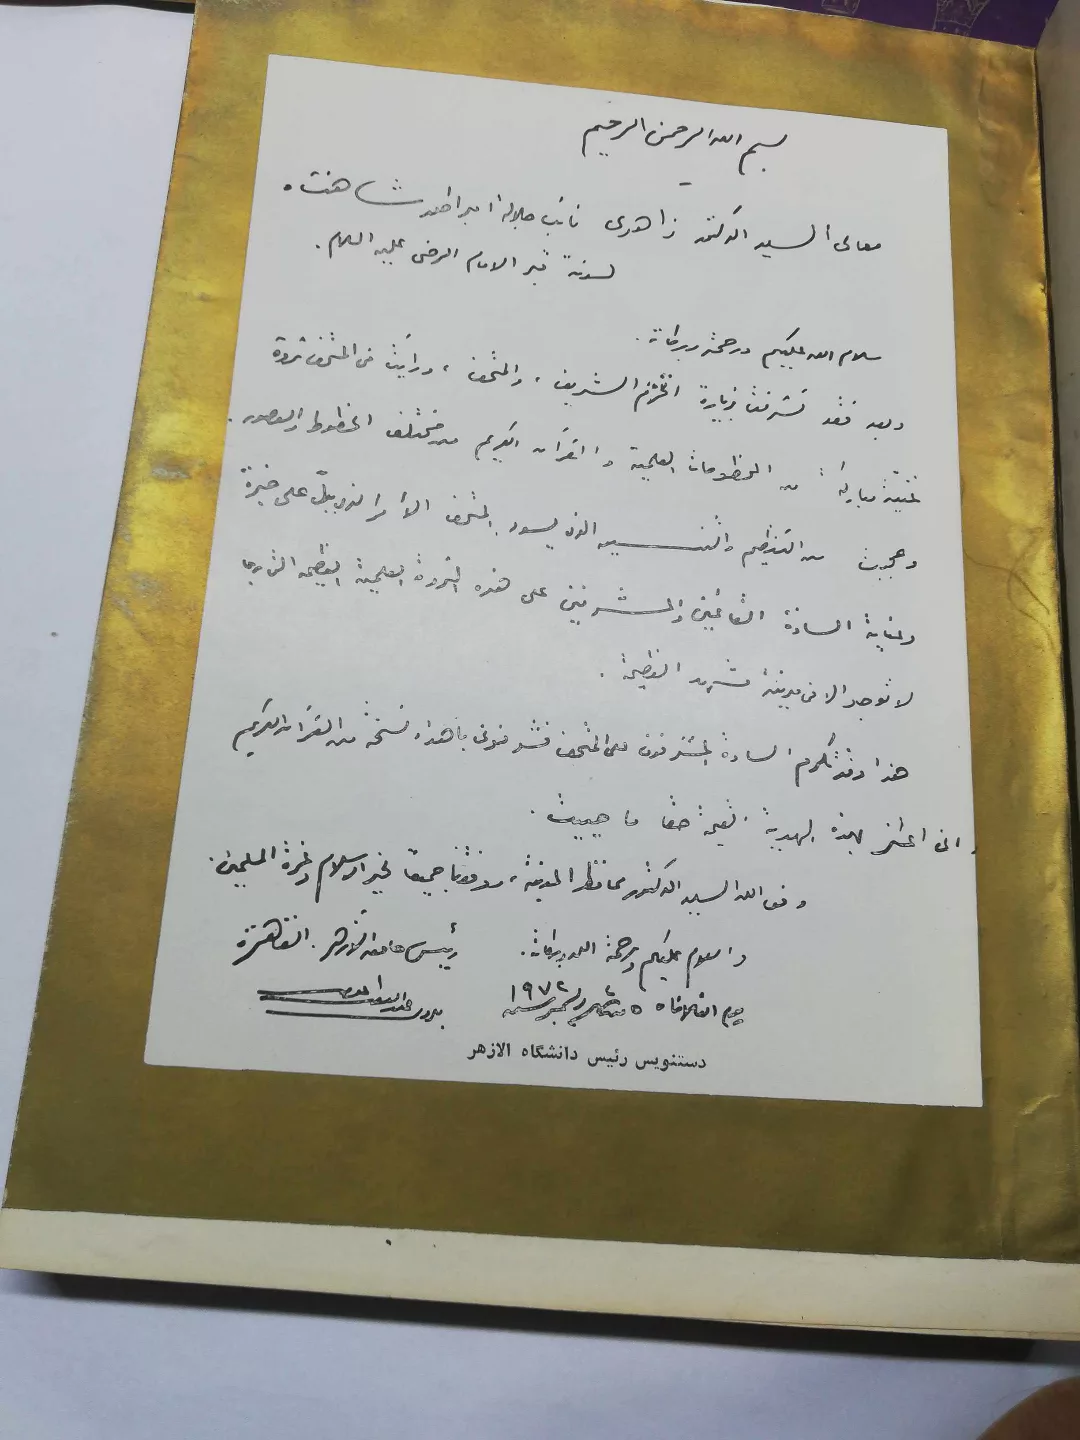 بسم الله الرحمن الرحيم
معالى السيد الدكتور زاهدى نائب جلالة امبراطور شاهنشاه
لسدنة قبر الامام الرضى عليه السلام .
سلام الله عليكم ورحمته وبركاته .
وبعد فقد تشرفت بزيارة الحرم الشريف ، والمتحف ، ورأيت فى المتحف ثروة
مباركة من المخطوطات العلمية والقرآن الكريم من مختلف الخطوط والعصور .
وعجبت من التنظيم والتنسيق الذى يسود المتحف الأمر الذى يدل على خبرة
وعناية السادة القائمين والمشرفين على هذه الثروة العلمية العظيمة التى ربما
لا توجد الا فى مدينة مشهد العظيمة .
هذا وقد تكرم السادة المشرفون على المتحف فشرفونى باهداء نسخة من القرآن الكريم
وانى اعتز بهذه الهدية القيمة حقا ما حييت .
وفق الله السيد الدكتور محافظ المدينة ، ووفقنا جميعا لخير الاسلام وعزة المسلمين .
والسلام عليكم ورحمة الله وبركاته . رئيس جامعة الأزهر . القاهرة
يوم الثلاثاء ٥ ديسمبر سنة ١٩٧٢ بدوى عبد اللطيف
دستنويس رئيس دانشگاه الازهر